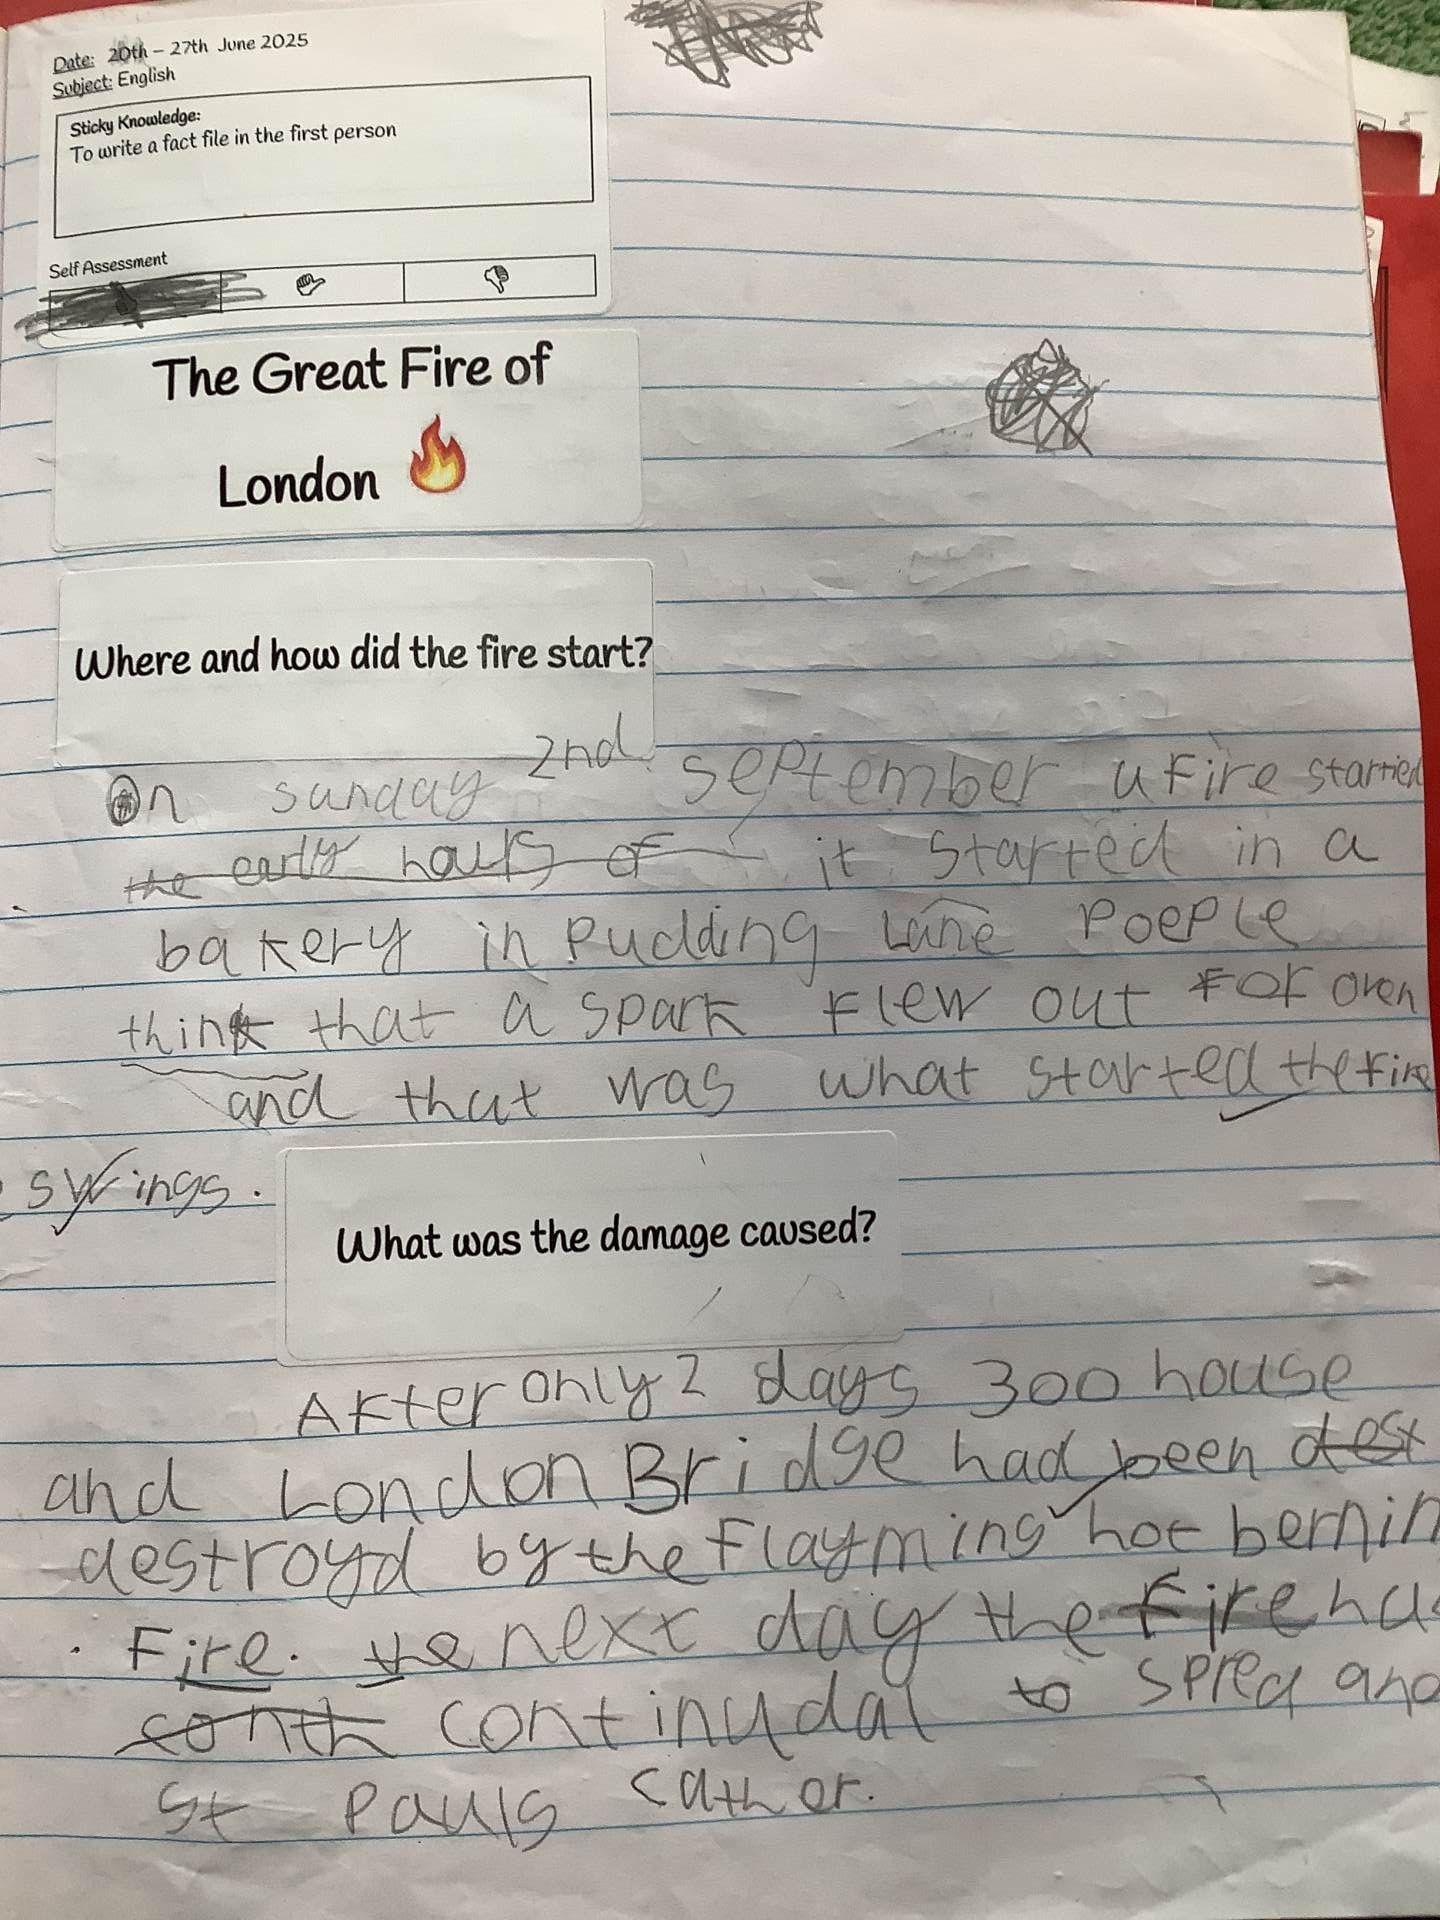 Date: 20th – 27th June 2025
Subject: English
Sticky Knowledge:
To write a fact file in the first person
Self Assessment
The Great Fire of
London
Where and how did the fire start?
On sunday 2nd september a Fire started
the early hours of it started in a
bakery in Pudding Lane Poeple
think that a spark Flew out For oven
and that was what started the Fire
What was the damage caused?
After only 2 days 300 house
and London Bridge had been dest
destroyd by the Flayming hot bernin
Fire. the next day the Fire ha
conth continudal to spred and
st Pauls cather.